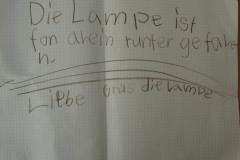 Die Lampe ist
fon alein runter gefahre
n.
Liebe Grüs die Lampe